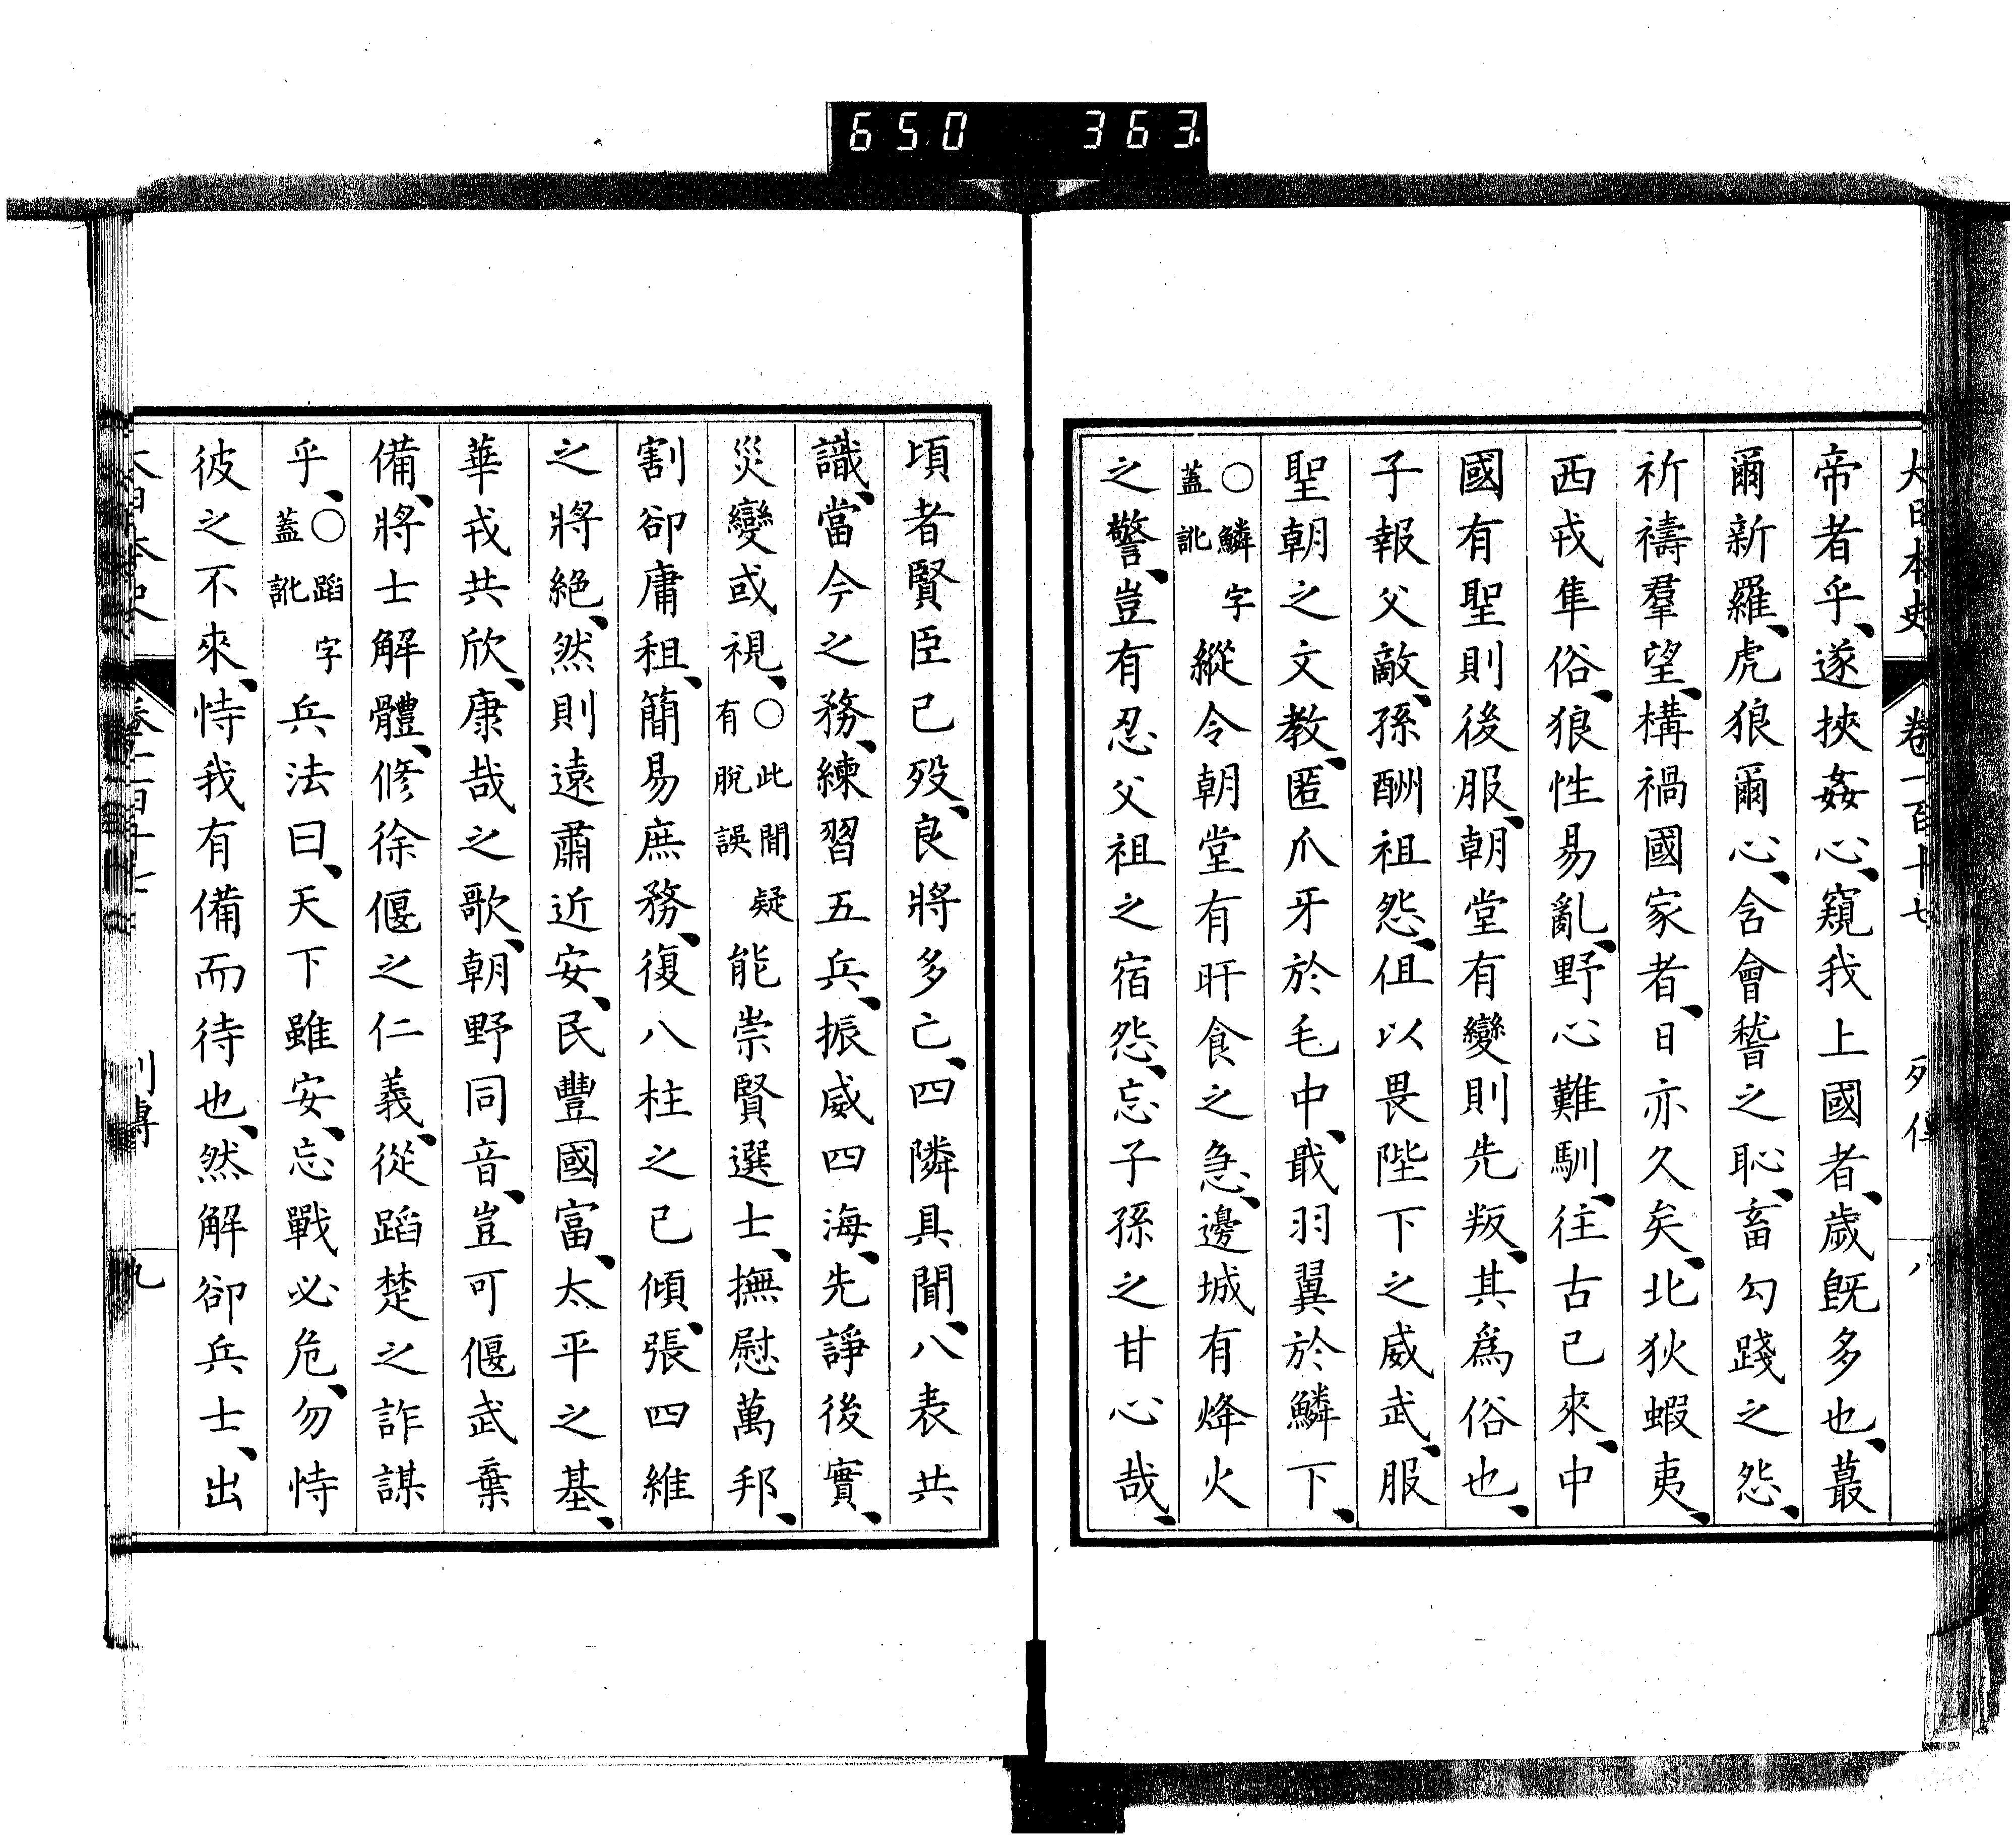 650 363
大日本史 卷一百十七 列傳 八
帝者乎、遂挾姦心、窺我上國者、歲旣多也、蕞
爾新羅、虎狼爾心、含會嵆之恥、畜勾踐之怨、
祈禱羣望、構禍國家者、日亦久矣、北狄蝦夷、
西戎隼俗、狼性易亂、野心難馴、往古已來、中
國有聖則後服、朝堂有變則先叛、其爲俗也、
子報父敵、孫酬祖怨、伹以畏陛下之威武、服
聖朝之文敎、匿爪牙於毛中、戢羽翼於鱗下、
○鱗字蓋訛 縱令朝堂有旰食之急、邊城有烽火
之警、豈有忍父祖之宿怨、忘子孫之甘心哉、
頃者賢臣已歿、良將多亡、四隣具聞、八表共
識、當今之務、練習五兵、振威四海、先諍後實、
災變或視、○此間疑有脫誤 能崇賢選士、撫慰萬邦、
割卻庸租、簡易庶務、復八柱之已傾、張四維
之將絕、然則遠肅近安、民豐國富、太平之基、
華戎共欣、康哉之歌、朝野同音、豈可偃武棄
備、將士解體、修徐偃之仁義、從蹈楚之詐謀
乎、○蹈字蓋訛 兵法曰、天下雖安、忘戰必危、勿恃
彼之不來、恃我有備而待也、然解卻兵士、出
大日本史 卷一百十七 列傳 九